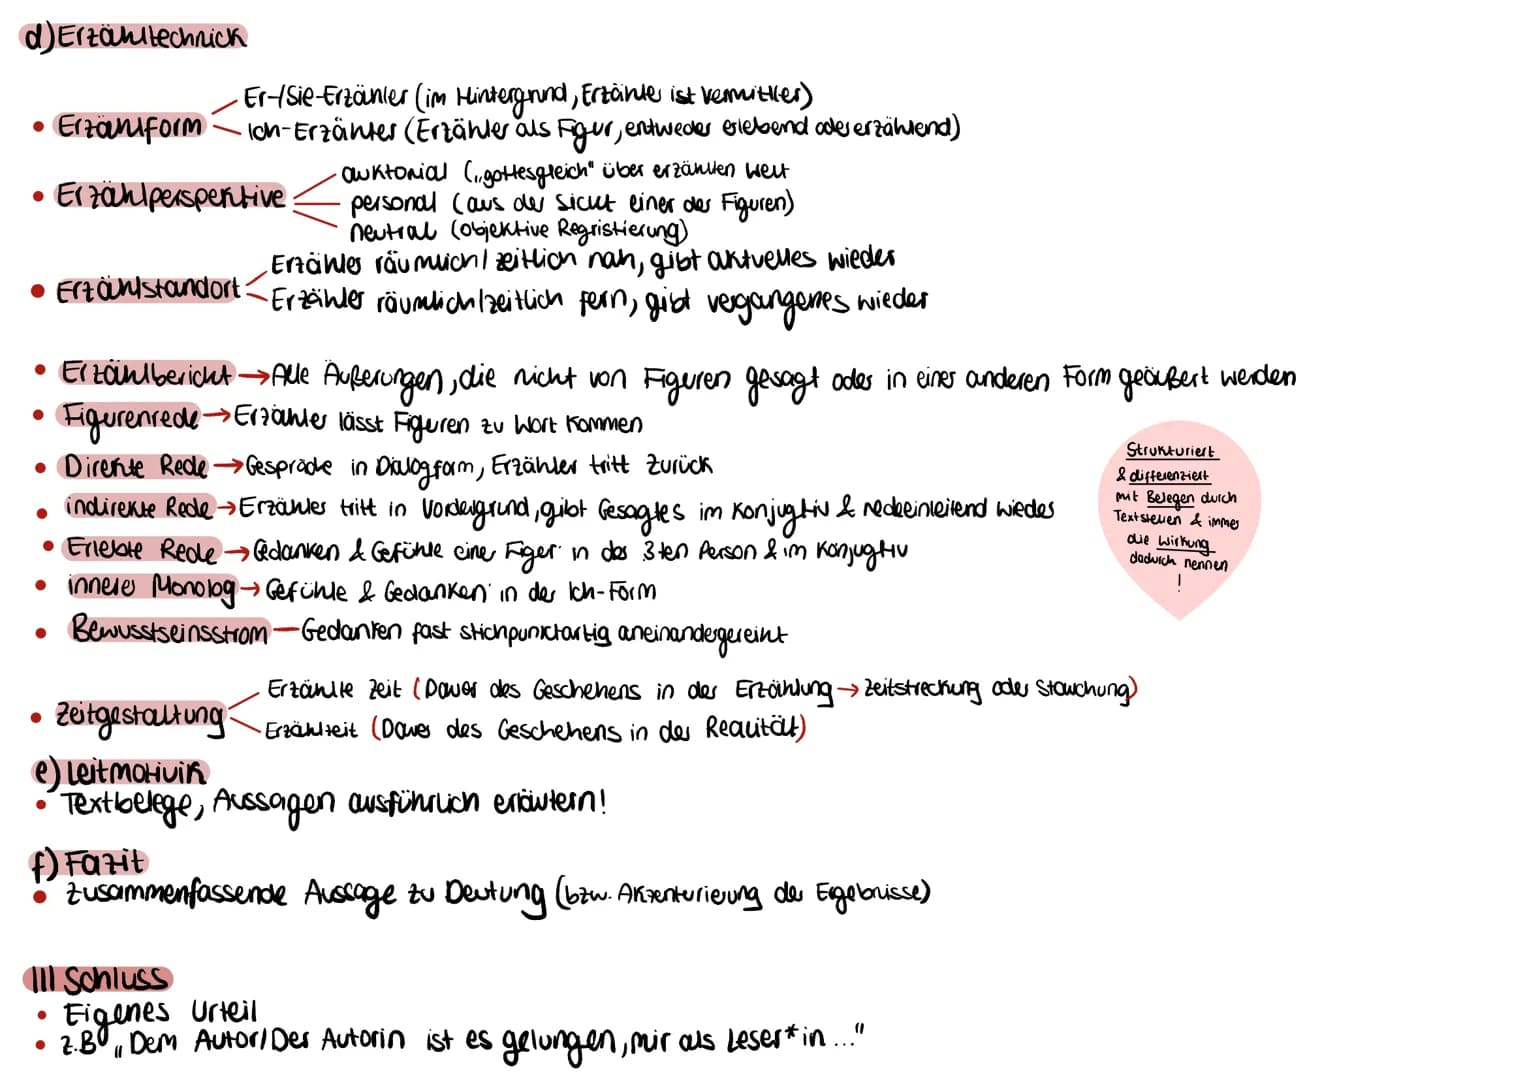 d) Erzähltechnick
Er-/Sie-Erzähler (im Hintergrund, Erzähler ist Vermittler)
• Erzählform
Ich-Erzähler (Erzähler als Figur, entweder erlebend oder erzählend)
auktorial („gottesgleich" über erzählten Welt
• Erzählperspektive
personal (aus der Sicht einer der Figuren)
neutral (objektive Regristierung)
Erzähler räumlich/zeitlich nah, gibt aktuelles wieder
• Erzählstandort
Erzähler räumlich/zeitlich fern, gibt vergangenes wieder
• Erzählbericht → Alle Äußerungen, die nicht von Figuren gesagt oder in einer anderen Form geäußert werden
• Figurenrede → Erzähler lässt Figuren zu Wort kommen
• Direkte Rede → Gespräche in Dialogform, Erzähler tritt zurück
• indirekte Rede → Erzähler tritt in Vordergrund, gibt Gesagtes im Konjugtiv & redeeinleitend wieder
• Erlebte Rede → Gedanken & Gefühle einer Figer in der 3ten Person & im Konjugtiv
• innerer Monolog → Gefühle & Gedanken in der Ich-Form
• Bewusstseinsstrom — Gedanken fast stichpunktartig aneinandergereiht
Strukturiert
& differenziert
mit Belegen durch
Textstellen & immer
die Wirkung
dadurch nennen
!
Erzählte Zeit (Dauer des Geschehens in der Erzählung → Zeitstreckung oder Stauchung)
• Zeitgestaltung
Erzählzeit (Dauer des Geschehens in der Realität)
e) Leitmotivik
• Textbelege, Aussagen ausführlich erläutern!
f) Fazit
• Zusammenfassende Aussage zu Deutung (bzw. Akzenturierung der Ergebnisse)
III Schluss
• Eigenes Urteil
• z.B „Dem Autor/Der Autorin ist es gelungen, mir als Leser*in ..."